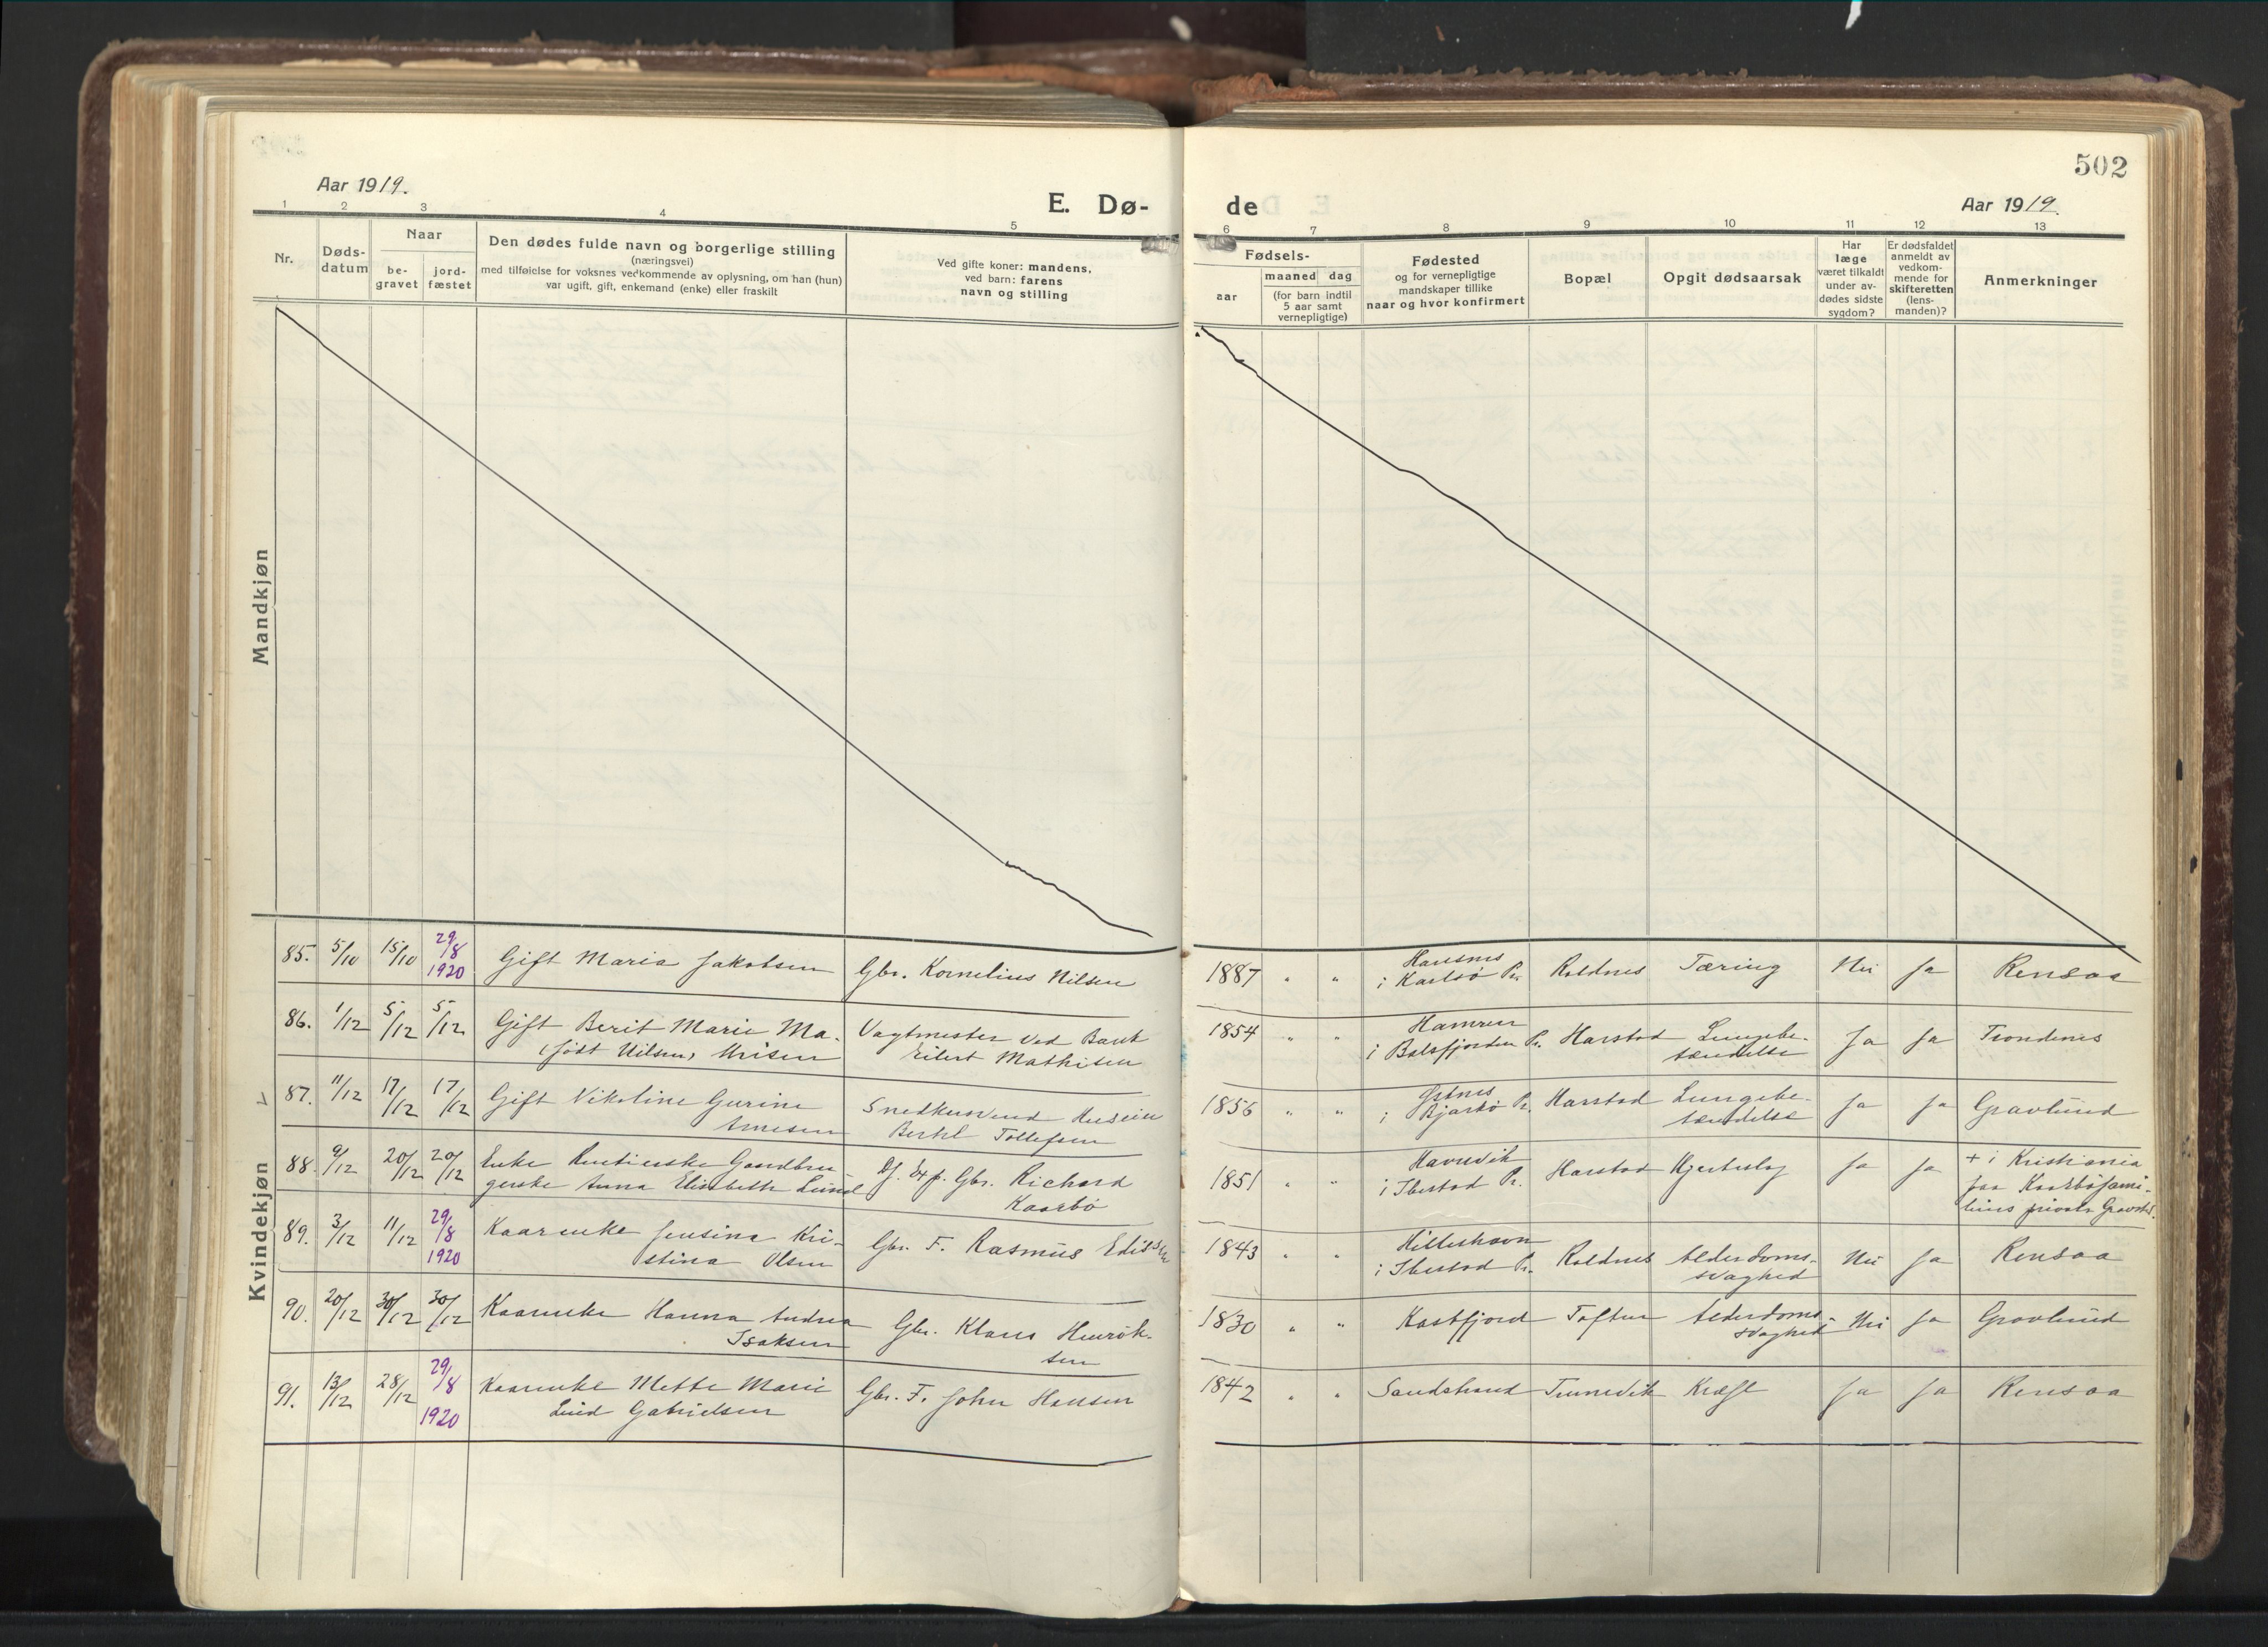 502
Aar 1919.
E. Dø-
de
Aar 1919.
1 2 3 4 5
6 7 8 9 10 11 12 13
Nr.
Døds-
datum
Naar
be-
gravet
jord-
fæstet
Den dødes fulde navn og borgerlige stilling
(næringsvei)
med tilføielse for voksnes vedkommende av oplysning, om han (hun)
var ugift, gift, enkemand (enke) eller fraskilt
Ved gifte koner: mandens,
ved barn: farens
navn og stilling
Fødsels-
aar
maaned dag
(for barn indtil
5 aar samt
vernepligtige)
Fødested
og for vernepligtige
mandskaper tillike
naar og hvor konfirmert
Bopæl
Opgit dødsaarsak
Har
læge
været tilkaldt
under av-
dødes sidste
sygdom?
Er dødsfaldet
anmeldt av
vedkom-
mende for
skifteretten
(lens-
manden)?
Anmerkninger
Mandkjøn
Kvindekjøn
85. 5/10 15/10 29/8 1920
Gift Maria Jakobsen
Gbr. Kornelius Nilsen
1887 " "
i Karlsø Pr.
Roldnes Tæring Nei Ja Rensaa
86. 1/12 5/12 5/12
Gift Berit Marie Ma.
(født Nilsen)
Vagtmester ved Bank
Eilert Mathisen
1854 " "
Hamren
i Balsfjorden Pr.
Harstad Lungebe-
tændelse
Ja Ja Trondenes
87. 11/12 17/12 17/12
Gift Nikoline Gurine
Arnesen
Bertel Tollefsen
1856 " "
i Bjarkø Pr.
Harstad Lungebe-
tændelse
Ja Ja Gravlund
88. 9/12 20/12 20/12
Enke Rentierske Gaardbru-
gerske Anna Elisabeth Lund
Df. Exp. Gbr. Richard
Kaarbø
1851 " "
Havnvik
i Ibestad Pr.
Harstad Hjerteslag Ja Ja
+ i Kristiania
paa Kaarbøfami-
liens private Gravsted.
89. 3/12 11/12 29/8 1920
Kaarenke Jensina Kri-
stina Olsen
Gbr. F. Rasmus Edissen
1843 " "
Hilleshavn
i Ibestad Pr.
Roldnes Alderdoms-
svaghed
Nei Ja Rensaa
90. 20/12 30/12 30/12
Kaarenke Hanna Andrea
Isaksen
Gbr. Klaus Henrik-
sen
1830 " "
Kastfjord Toften Alderdoms-
svaghed
Nei Ja Gravlund
91. 13/12 28/12 29/8 1920
Kaarenke Mette Marie
Lind Gabrielsen
Gbr. F. John Hansen
1842 " "
Sandstrand Tennevik Kræft Ja Ja Rensaa